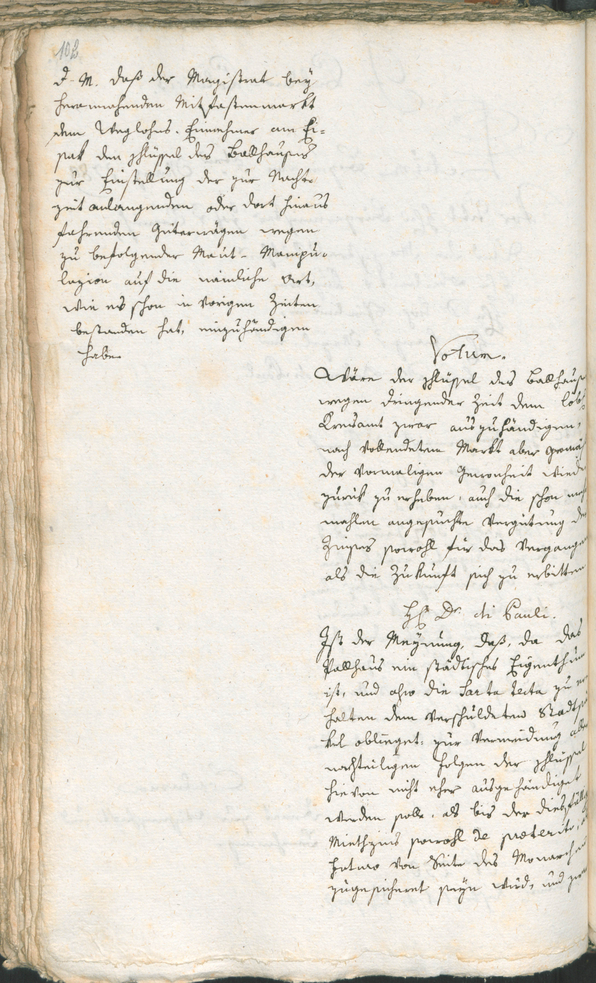 102
d. M. daß der Magistrat bey
herannahenden Mitfastenmarkt
dem Weglohns-Einnehmer am Ei-
sak den Schlüssel des Ballhauses
zur Einstellung der zur Nacht-
zeit anlangenden oder dort hinaus
fahrenden Güterwägen wegen
zu befolgender Maut-Manipu-
lazion auf die nämliche Art,
wie es schon in vorigen Zeiten
bestanden hat, einzuhändigen
habe.
Votum.
Wäre der Schlüssel des Ballhaus
wegen dringender Zeit dem löb
Kreisamt zwar auszuhändigen,
nach vollendetem Markt aber gemäß
der vormaligen Gewonheit wied
zurük zu erheben, auch die schon
mahlen angesuchte Vergütung
Zinses sowohl für das Vergangene
als die Zukunft sich zu erbitten
H. Dr. di Pauli.
Ist der Meynung, daß, da das
Ballhaus ein städtisches Eigenthum
ist, und also die Sarta tecta zu
halten dem verschuldeten Stadts
kel oblieget, zur Vermeidung
nachteiligen Folgen der Schlüssel
hievon nicht eher ausgehändiget
werden solle, als bis der diesfällige
Miethzins sowohl de praeterito,
futuro von Seite des Monarchen
zugesicheret seyn wird, und